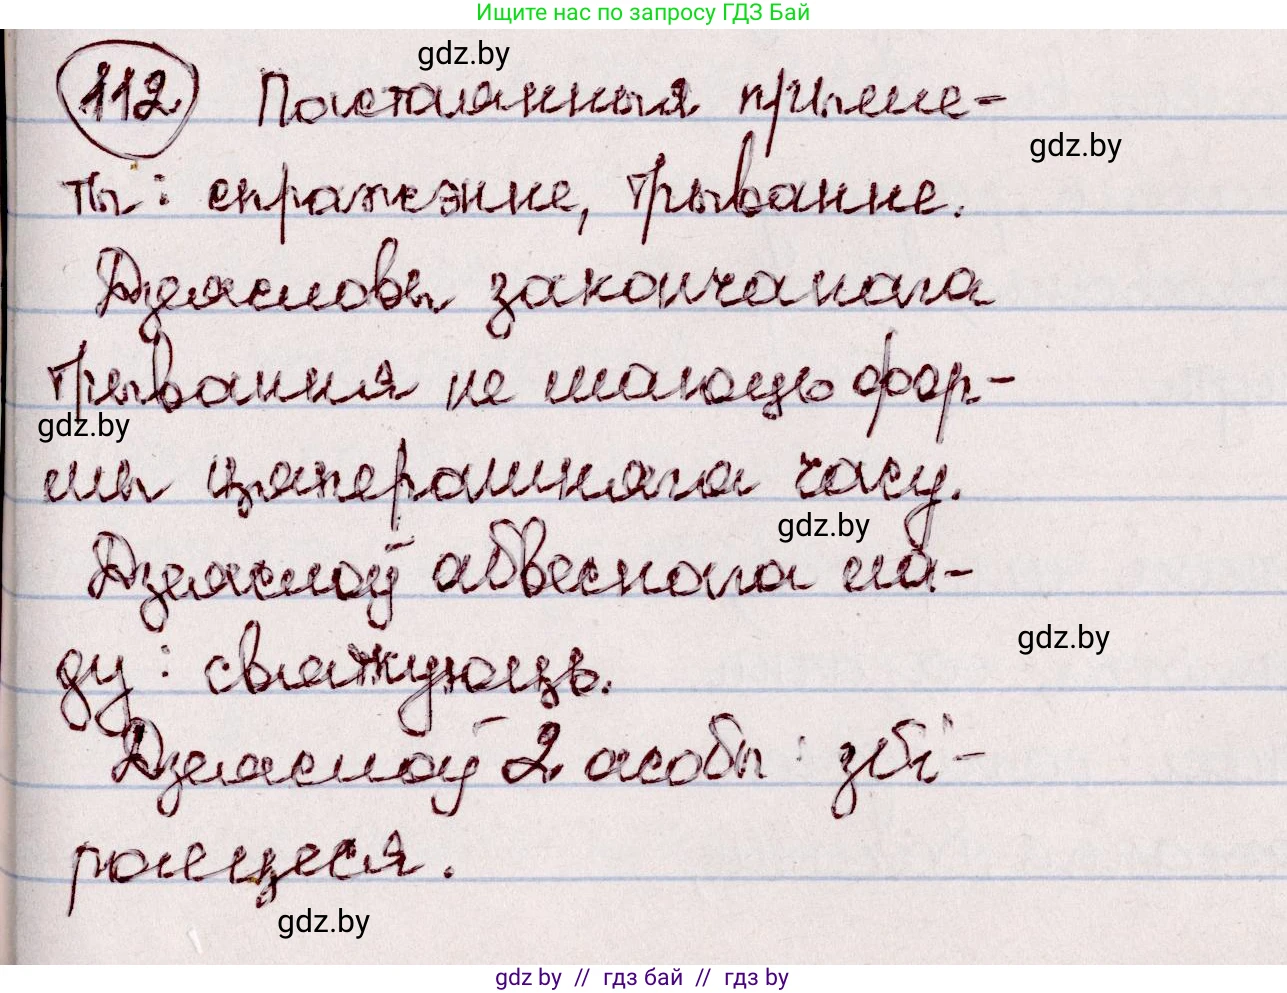 Ищите нас по запросу ГДЗ Бай
gdz.by
112 Пастаянныя прыме-
gdz.by
ты: спражэнне, трыванне.
Дзеясловы закончанага
трывання не маюць фор-
gdz.by
мы цяперашняга часу.
gdz.by
Дзеяслоў абвеснага ла-
gdz.by
ду: святкуюць.
Дзеяслоў 2 асобы: збі-
раецеся.
gdz.by
gdz by // гдз бай // гдз by